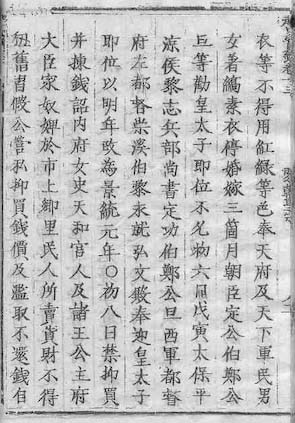 衣等不得用紅綠等色奉天府及天下軍民男
女著縞素衣停婚嫁三箇月朝臣定公伯鄭公
旦等勸皇太子即位不允初六日戊寅太保平
涼侯黎志兵部尚書定功伯鄭公旦西軍都督
府左都督崇溪伯黎永就弘文殿奉迎皇太子
即位以明年改為景統元年〇初八日禁抑買
并揀錢詔內府女史天和宮人及諸王公主府
大臣家奴婢於市上鄉里民人所賣貨財不得
仍舊習假公營私抑買錢價及濫取不還錢自